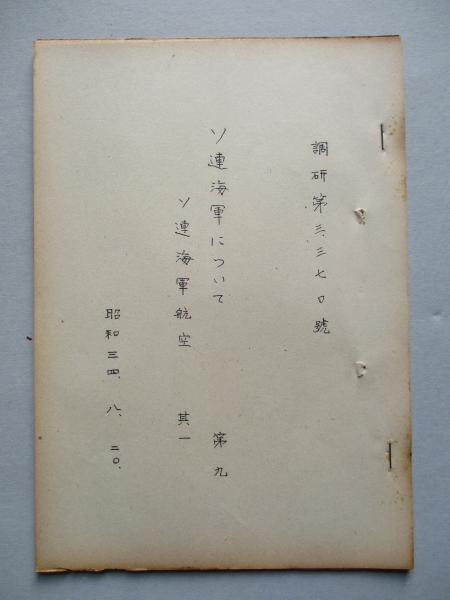 調研第三、三七〇號
ソ連海軍について 第九
ソ連海軍航空 其一
昭和三四、八、二〇、